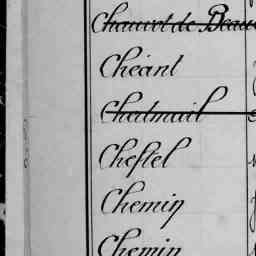 Chauvet de Beau
Chéant
Chatmail
Cheftel
Chemin
Chemin